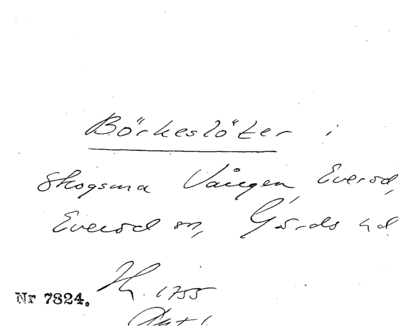 Börkeslöter i
Skogsma Vången, Everöd,
Everöd sn, Gärds hd
Nr 7824. H. 1755
Akt 1